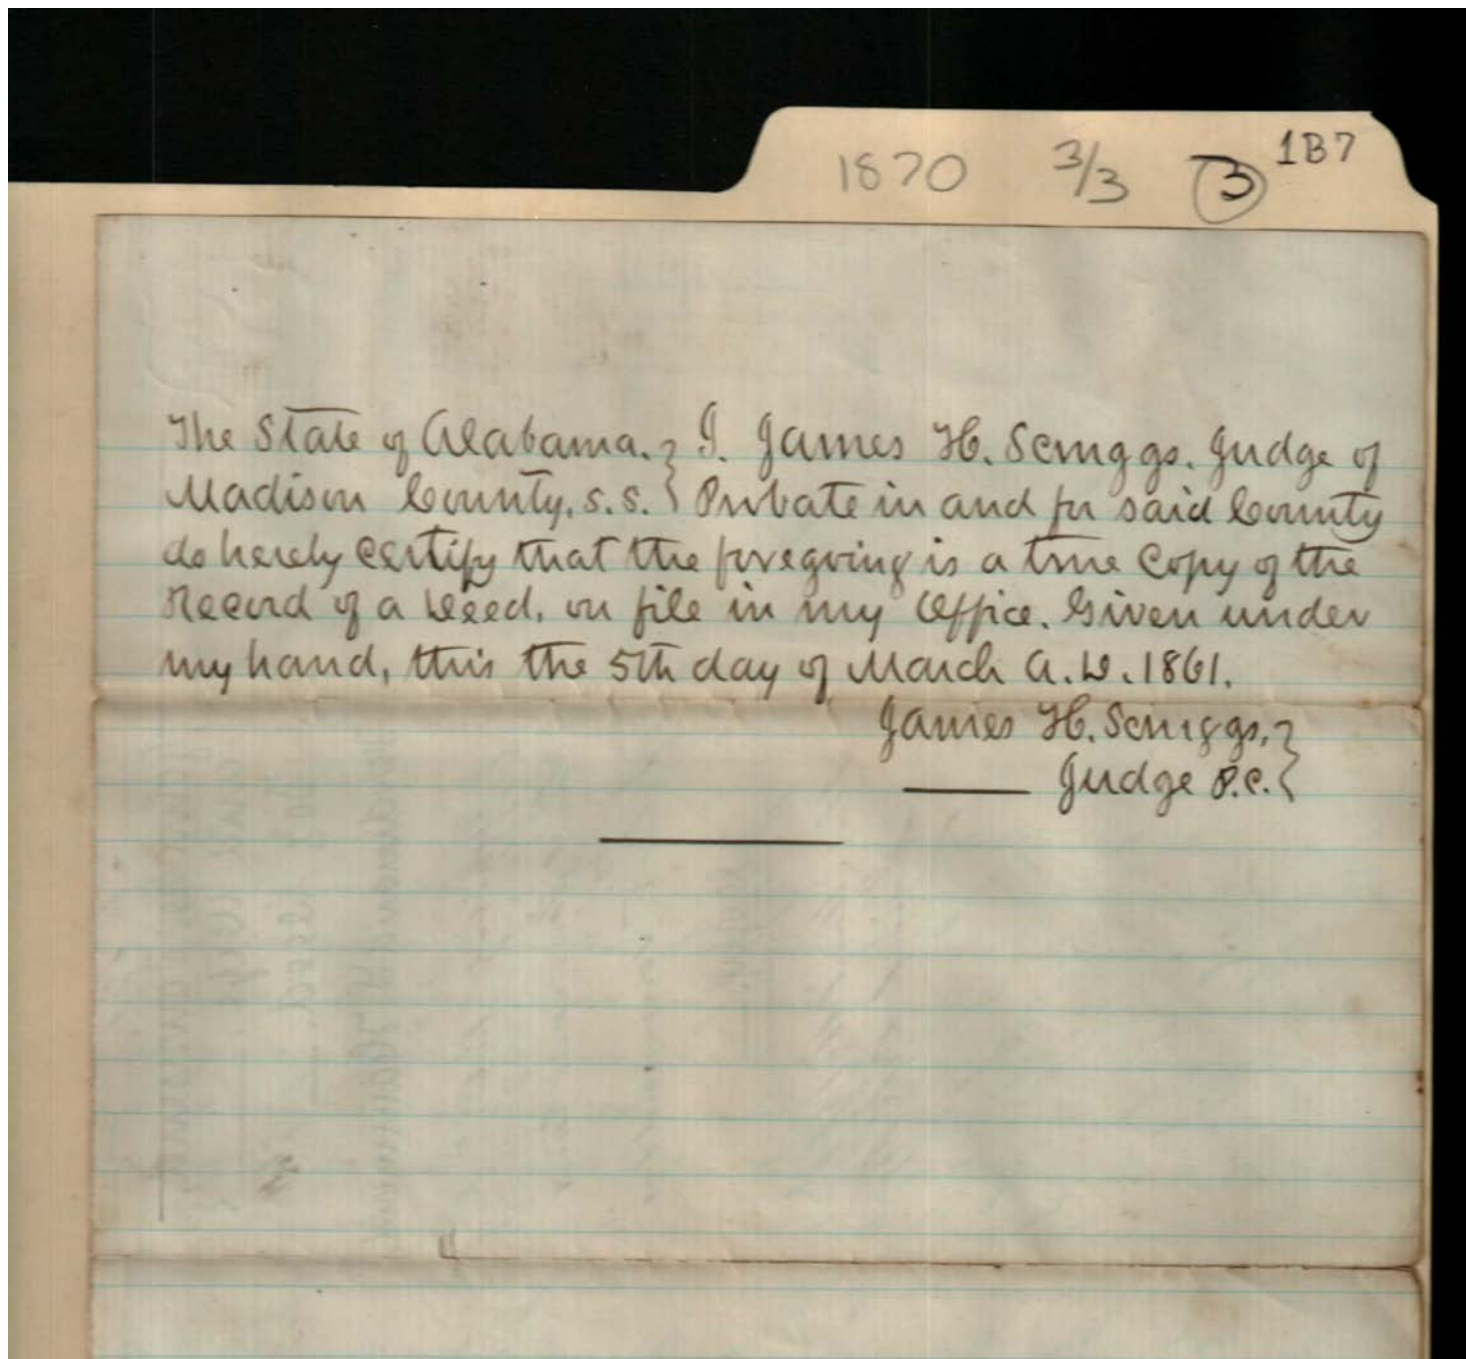 1870 3/3 3 1B7
The State of Alabama. } I. James H. Scruggs. Judge of
Madison County, S.S. } Probate in and for said County
do hereby certify that the foregoing is a true Copy of the
Record of a Deed, on file in my Office. Given under
my hand, this the 5th day of March A.D. 1861.
James H. Scruggs, }
Judge P.C. }